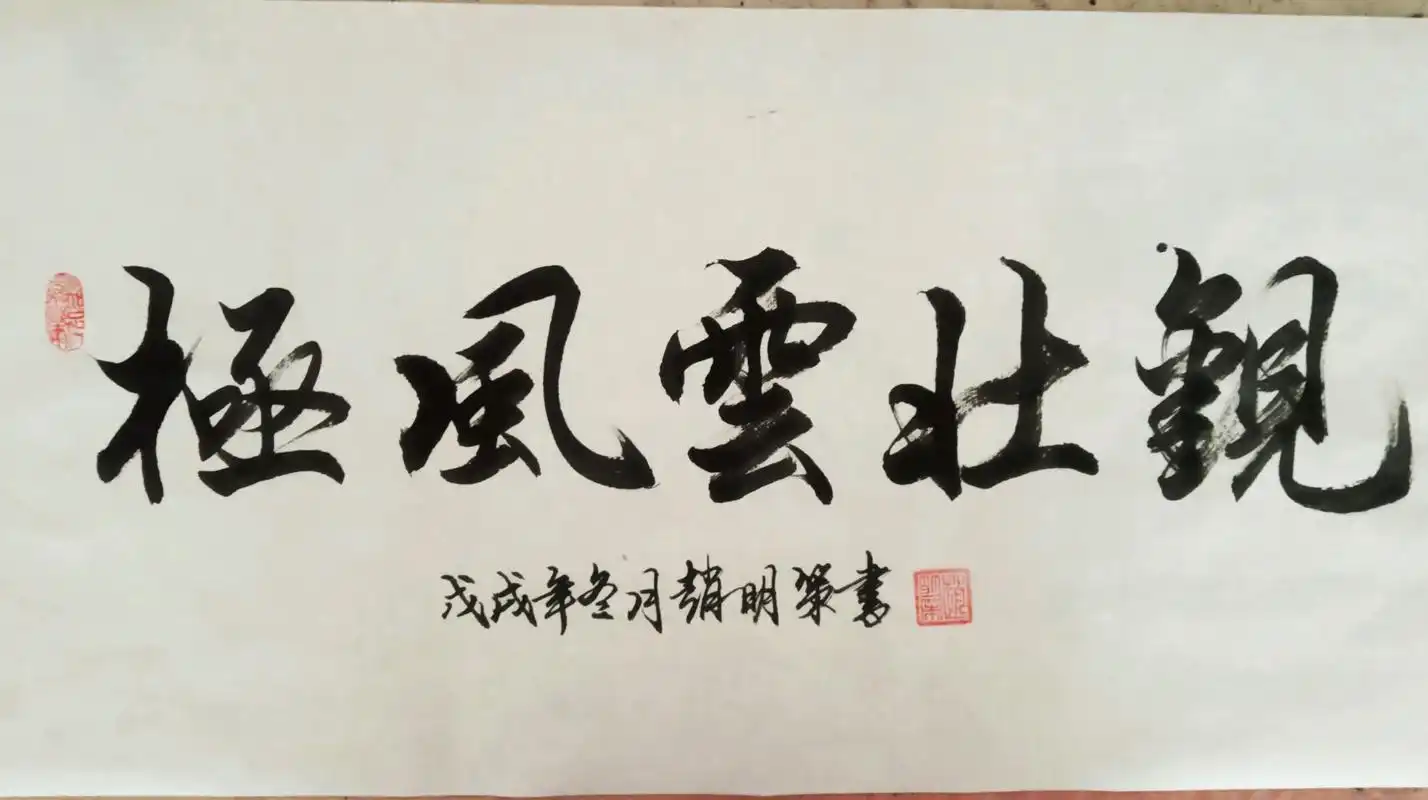 極風雲壯觀
戊戌年冬月趙明策書